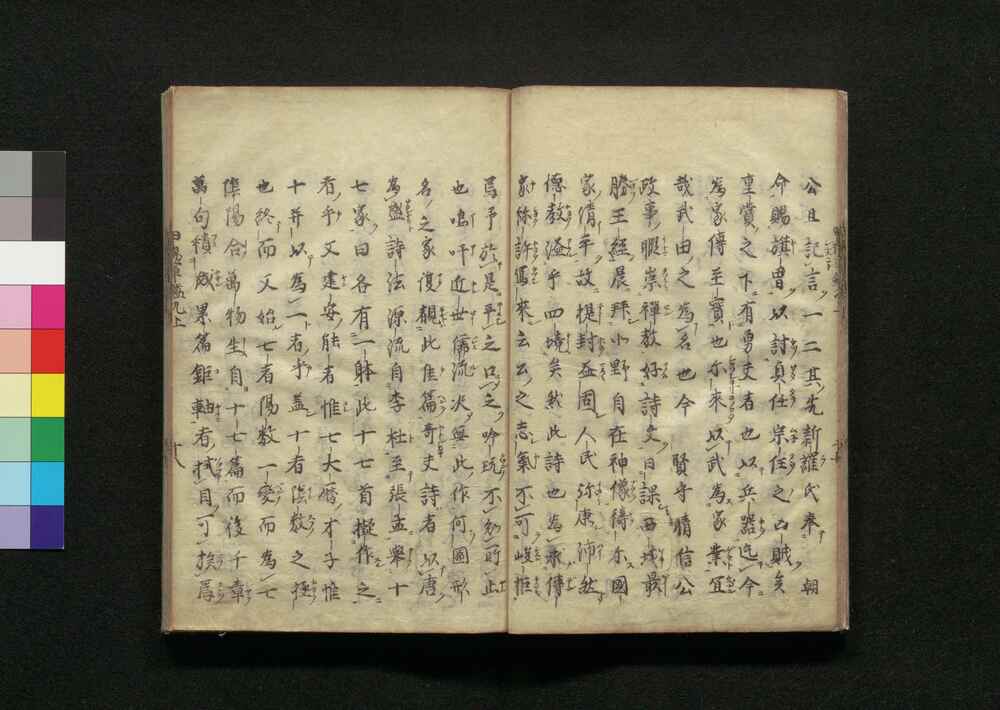 公且記言一二其先新羅氏奉 朝
命賜旗曽以討貞任宗任之凶賊矣
重賞之下有勇丈者也以兵器迄今
為家傳至寳也尓來以武為家業宜
哉武由之為名也今 賢守晴信公
政事暇崇禅教好詩文日課西域最
勝王經晨拜小野自在神像得尓國
家清平故提封益固人民弥康沛然
徳教溢乎四境矣然此詩也為永傳
家称許寫來云云之志氣不可峻拒
焉予於是乎之口之吟玩不知所止
也嗚呼近世儒流決無此作何圖形
名之家復覩此佳篇奇丈詩者以唐
為盛詩法源流自李杜至張孟舉十
七家曰各有一躰此十七首擬作之
者乎又建安能者惟七大暦才子惟
十并以為二者乎盖十者陰数之極
也終而又始七者陽数一変而為七
陰陽合萬物生自十七篇而後千章
萬句積成果篇鉅軸者拭目可挨焉
十八